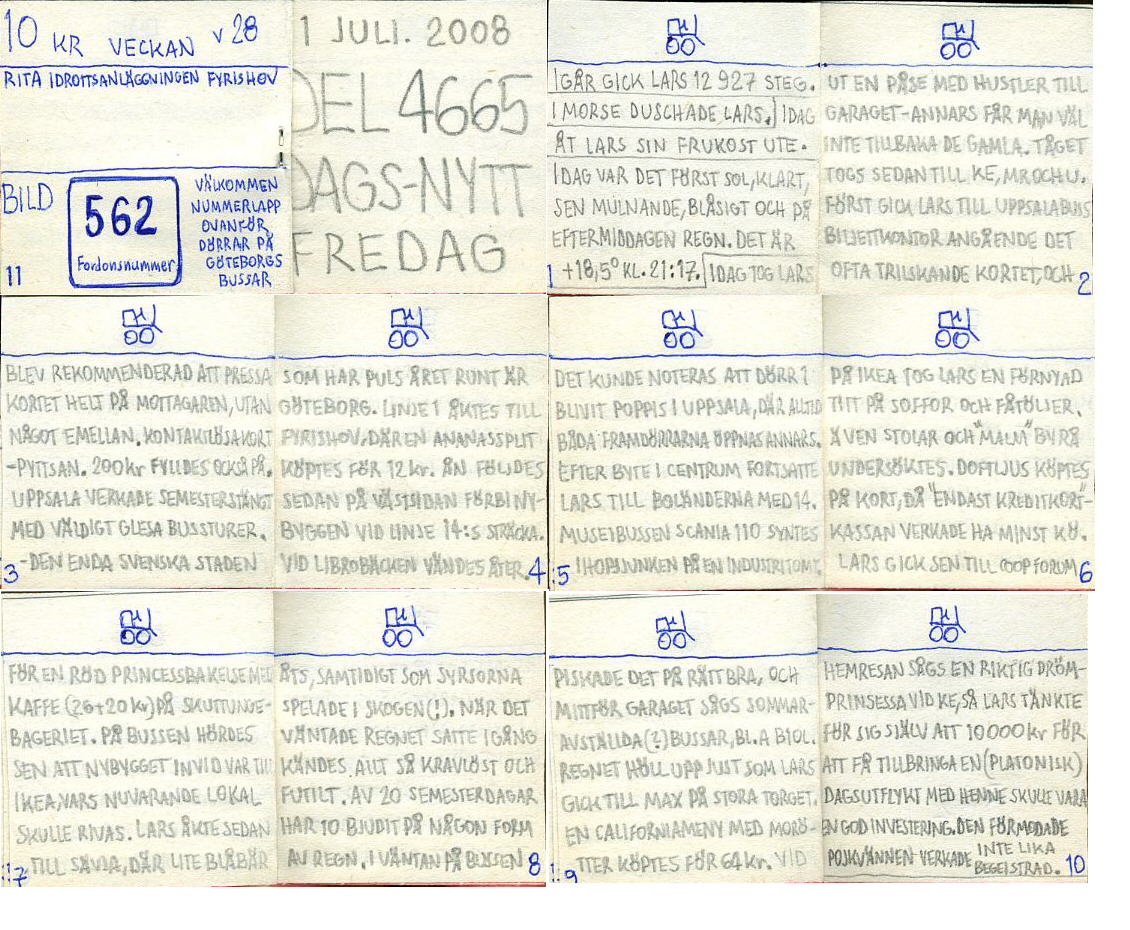 10 KR VECKAN V 28
RITA IDROTTSANLÄGGNINGEN FYRISHOV
BILD
11
562
Fordonsnummer
VÄLKOMMEN
NUMMERLAPP
OVANFÖR
DÖRRAR PÅ
GÖTEBORGS
BUSSAR
1 JULI. 2008
DEL 4665
DAGS-NYTT
FREDAG
IGÅR GICK LARS 12 927 STEG.
I MORSE DUSCHADE LARS. IDAG
ÅT LARS SIN FRUKOST UTE.
IDAG VAR DET FÖRST SOL, KLART,
SEN MULNANDE, BLÅSIGT OCH PÅ
EFTERMIDDAGEN REGN. DET ÄR
+18,5° KL. 21:17. IDAG TOG LARS
1
UT EN PÅSE MED HUSTLER TILL
GARAGET-ANNARS FÅR MAN VÄL
INTE TILLBAKA DE GAMLA. TÅGET
TOGS SEDAN TILL KE, MR OCH U.
FÖRST GICK LARS TILL UPPSALABUSS
BILJETTKONTOR ANGÅENDE DET
OFTA TRILSKANDE KORTET, OCH
2
BLEV REKOMMENDERAD ATT PRESSA
KORTET HELT PÅ MOTTAGAREN, UTAN
NÅGOT EMELLAN. KONTAKTLÖSA KORT
-PYTTSAN. 200kr FYLLDES OCKSÅ PÅ.
UPPSALA VERKADE SEMESTERSTÄNGT
MED VÄLDIGT GLESA BUSSTURER.
-DEN ENDA SVENSKA STADEN
3
SOM HAR PULS ÅRET RUNT ÄR
GÖTEBORG. LINJE 1 ÅKTES TILL
FYRISHOV, DÄR EN ANANASSPLIT
KÖPTES FÖR 12 kr. ÅN FÖLJDES
SEDAN PÅ VÄSTSIDAN FÖRBI NY-
BYGGEN VID LINJE 14:S STRÄCKA.
VID LIBROBÄCKEN VÄNDES ÅTER.
4
DET KUNDE NOTERAS ATT DÖRR 1
BLIVIT POPPIS I UPPSALA, DÄR ALLTID
BÅDA FRAMDÖRRARNA ÖPPNAS ANNARS.
EFTER BYTE I CENTRUM FORTSATTE
LARS TILL BOLÄNDERNA MED 14.
MUSEIBUSSEN SCANIA 110 SYNTES
IHOPSJUNKEN PÅ EN INDUSTRITOMT.
5
PÅ IKEA TOG LARS EN FÖRNYAD
TITT PÅ SOFFOR OCH FÅTÖLJER.
ÄVEN STOLAR OCH "MALM" BYRÅ
UNDERSÖKTES. DOFTLJUS KÖPTES
PÅ KORT, DÅ "ENDAST KREDITKORT"-
KASSAN VERKADE HA MINST KÖ.
LARS GICK SEN TILL COOP FORUM
6
FÖR EN RÖD PRINCESSBAKELSE MED
KAFFE (26+20 kr) PÅ SKUTTUNGE-
BAGERIET. PÅ BUSSEN HÖRDES
SEN ATT NYBYGGET INVID VAR TILL
IKEA, VARS NUVARANDE LOKAL
SKULLE RIVAS. LARS ÅKTE SEDAN
TILL SÄVJA, DÄR LITE BLÅBÄR
7
ÅTS, SAMTIDIGT SOM SYRSORNA
SPELADE I SKOGEN (!). NÄR DET
VÄNTADE REGNET SATTE IGÅNG
KÄNDES ALLT SÅ KRAVLÖST OCH
FUTILT. AV 20 SEMESTERDAGAR
HAR 10 BJUDIT PÅ NÅGON FORM
AV REGN. I VÄNTAN PÅ BUSSEN
8
PISKADE DET PÅ RÄTT BRA, OCH
MITTFÖR GARAGET SÅGS SOMMAR-
AVSTÄLLDA (?) BUSSAR, BL.A BIOL.
REGNET HÖLL UPP JUST SOM LARS
GICK TILL MAX PÅ STORA TORGET.
EN CALIFORNIAMENY MED MORÖ-
TTER KÖPTES FÖR 64 kr. VID
9
HEMRESAN SÅGS EN RIKTIG DRÖM-
PRINSESSA VID KE, SÅ LARS TÄNKTE
FÖR SIG SJÄLV ATT 10 000 kr FÖR
ATT FÅ TILLBRINGA EN (PLATONISK)
DAGSUTFLYKT MED HENNE SKULLE VARA
EN GOD INVESTERING. DEN FÖRMODADE
POJKVÄNNEN VERKADE INTE LIKA
BEGEISTRAD. 10